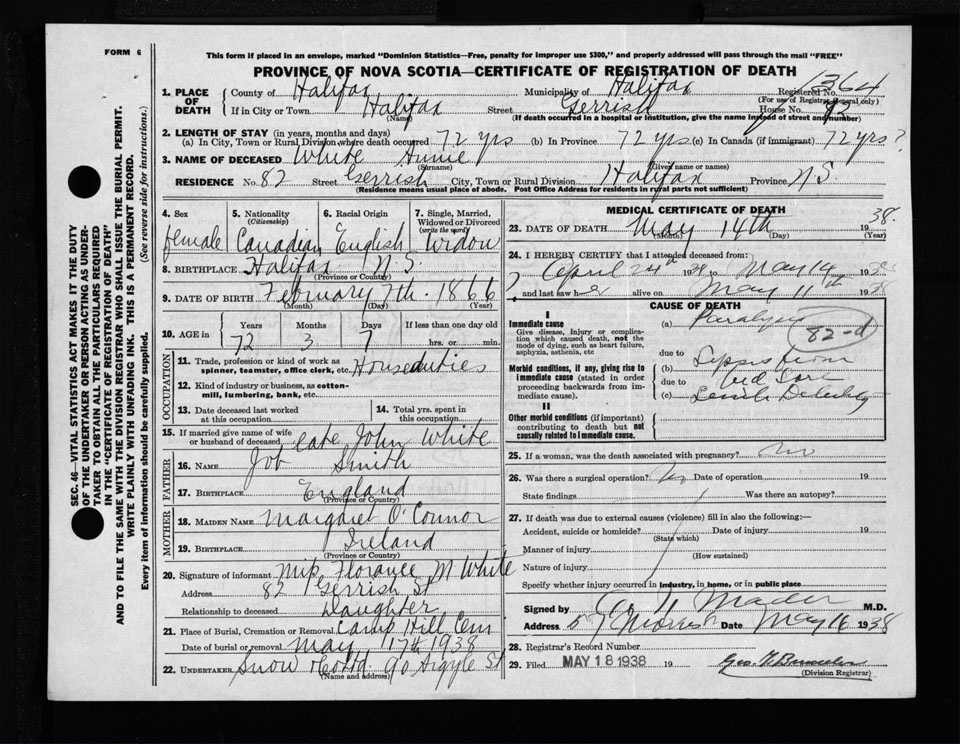 FORM 6
This form if placed in an envelope, marked "Dominion Statistics—Free, penalty for improper use $300," and properly addressed will pass through the mail "FREE"
PROVINCE OF NOVA SCOTIA—CERTIFICATE OF REGISTRATION OF DEATH
SEC. 46—VITAL STATISTICS ACT MAKES IT THE DUTY
OF THE UNDERTAKER OR PERSON ACTING AS UNDER-
TAKER TO OBTAIN ALL THE PARTICULARS REQUIRED
IN THE "CERTIFICATE OF REGISTRATION OF DEATH"
AND TO FILE THE SAME WITH THE DIVISION REGISTRAR WHO SHALL ISSUE THE BURIAL PERMIT.
WRITE PLAINLY WITH UNFADING INK. THIS IS A PERMANENT RECORD.
Every item of information should be carefully supplied. (See reverse side for instructions.)
1. PLACE OF DEATH County of Halifax Municipality of Halifax Registered No. 1364
(For use of Registrar General only)
If in City or Town Halifax Street Gerrish House No.
(Name) (If death occurred in a hospital or institution, give the name instead of street and number)
2. LENGTH OF STAY (in years, months and days)
(a) In City, Town or Rural Division where death occurred 72 yrs (b) In Province 72 yrs (c) In Canada (if immigrant) 72 yrs?
3. NAME OF DECEASED White Annie
(Surname) (Given name or names)
RESIDENCE No. 82 Street Gerrish City, Town or Rural Division Halifax Province N.S.
(Residence means usual place of abode. Post Office Address for residents in rural parts not sufficient)
4. Sex female
5. Nationality (Citizenship) Canadian
6. Racial Origin English
7. Single, Married, Widowed or Divorced (write the word) Widow
8. BIRTHPLACE Halifax N.S.
(Province or Country)
9. DATE OF BIRTH February 7th. 1866
(Month) (Day) (Year)
10. AGE in Years 72 Months 3 Days 7 If less than one day old hrs. or min.
OCCUPATION
11. Trade, profession or kind of work as spinner, teamster, office clerk, etc. Houseduties
12. Kind of industry or business, as cotton-mill, lumbering, bank, etc.
13. Date deceased last worked at this occupation
14. Total yrs. spent in this occupation
15. If married give name of wife or husband of deceased Late John White
FATHER
16. NAME Job Smith
17. BIRTHPLACE England
(Province or Country)
MOTHER
18. MAIDEN NAME Margaret O'Connor
19. BIRTHPLACE Ireland
(Province or Country)
20. Signature of informant Florance M White
Address 82 Gerrish St
Relationship to deceased Daughter
21. Place of Burial, Cremation or Removal Camp Hill Cem
Date of burial or removal May 17th 1938
22. UNDERTAKER Snow & Co Ltd. 90 Argyle St
(Name and address)
MEDICAL CERTIFICATE OF DEATH
23. DATE OF DEATH May 14th 38.
(Month) (Day) (Year)
24. I HEREBY CERTIFY that I attended deceased from:
April 24th 19 to May 14 19
and last saw her alive on May 11th 19
CAUSE OF DEATH
I
Immediate cause
Give disease, injury or complication which caused death, not the mode of dying, such as heart failure, asphyxia, asthenia, etc
(a) Paralysis
82-d
due to
Morbid conditions, if any, giving rise to immediate cause (stated in order proceeding backwards from immediate cause).
(b) from
due to Bed Sore
(c)
II
Other morbid conditions (if important) contributing to death but not causally related to immediate cause.
25. If a woman, was the death associated with pregnancy? no
26. Was there a surgical operation? no Date of operation 19
State findings Was there an autopsy?
27. If death was due to external causes (violence) fill in also the following:—
Accident, suicide or homicide? Date of injury 19
(State which)
Manner of injury
(How sustained)
Nature of injury
Specify whether injury occurred in industry, in home, or in public place
Signed by Mader M.D.
Address 57 Morris St Date May 16 1938
28. Registrar's Record Number
29. Filed MAY 18 1938 19
(Division Registrar)